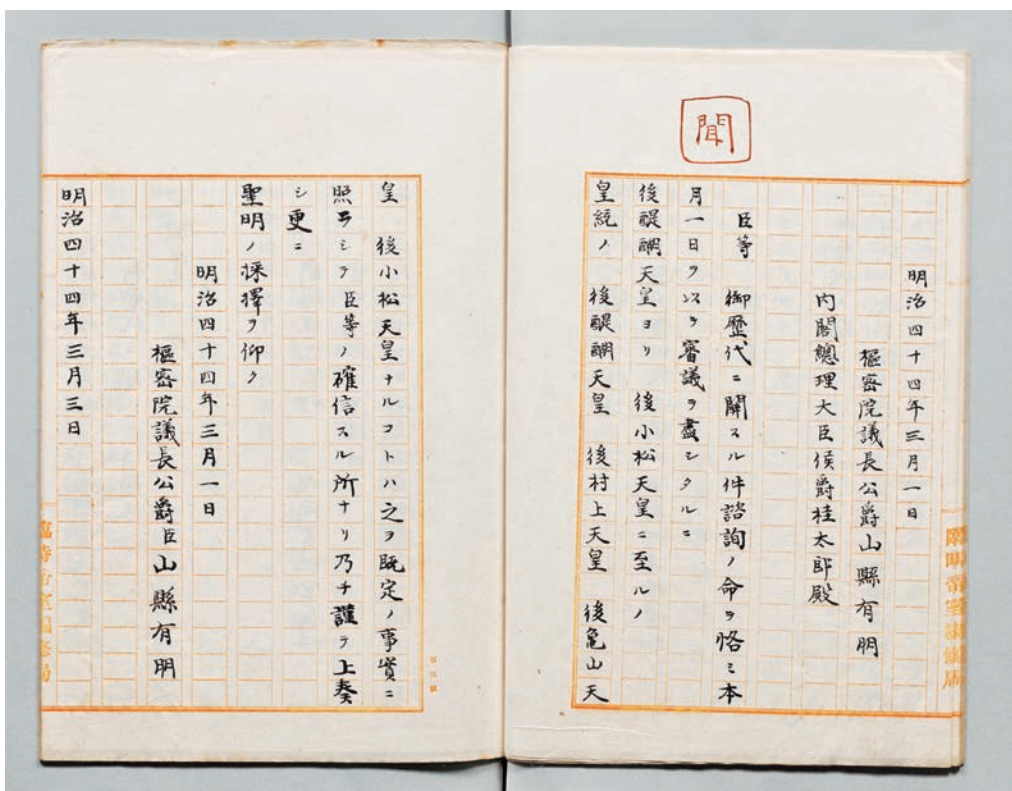 聞
明治四十四年三月一日
樞密院議長公爵山縣有朋
内閣總理大臣侯爵桂太郎殿
臣等 御歷代ニ關スル件諮詢ノ命ヲ恪ミ本
月一日ヲ以テ審議ヲ盡シタルニ
後醍醐天皇ヨリ 後小松天皇ニ至ルノ
皇統ノ 後醍醐天皇 後村上天皇 後亀山天
皇 後小松天皇ナルコトハ之ヲ既定ノ事實ニ
照ラシテ臣等ノ確信スル所ナリ乃チ謹テ上奏
シ更ニ
聖明ノ採擇ヲ仰ク
明治四十四年三月一日
樞密院議長公爵臣山縣有朋
明治四十四年三月三日